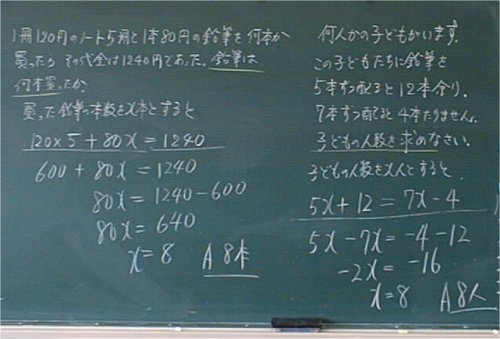 1冊120円のノート5冊と1本80円の鉛筆を何本か
買ったら その代金は1240円であった。鉛筆は
何本買ったか。
買った鉛筆の本数をx本とすると
120×5+80x=1240
600+80x=1240
80x=1240-600
80x=640
x=8 A 8本
何人かの子どもがいます。
この子どもたちに鉛筆を
5本ずつ配ると12本余り、
7本ずつ配ると4本たりません。
子どもの人数を求めなさい。
子どもの人数をx人とすると
5x+12=7x-4
5x-7x=-4-12
-2x=-16
x=8 A 8人